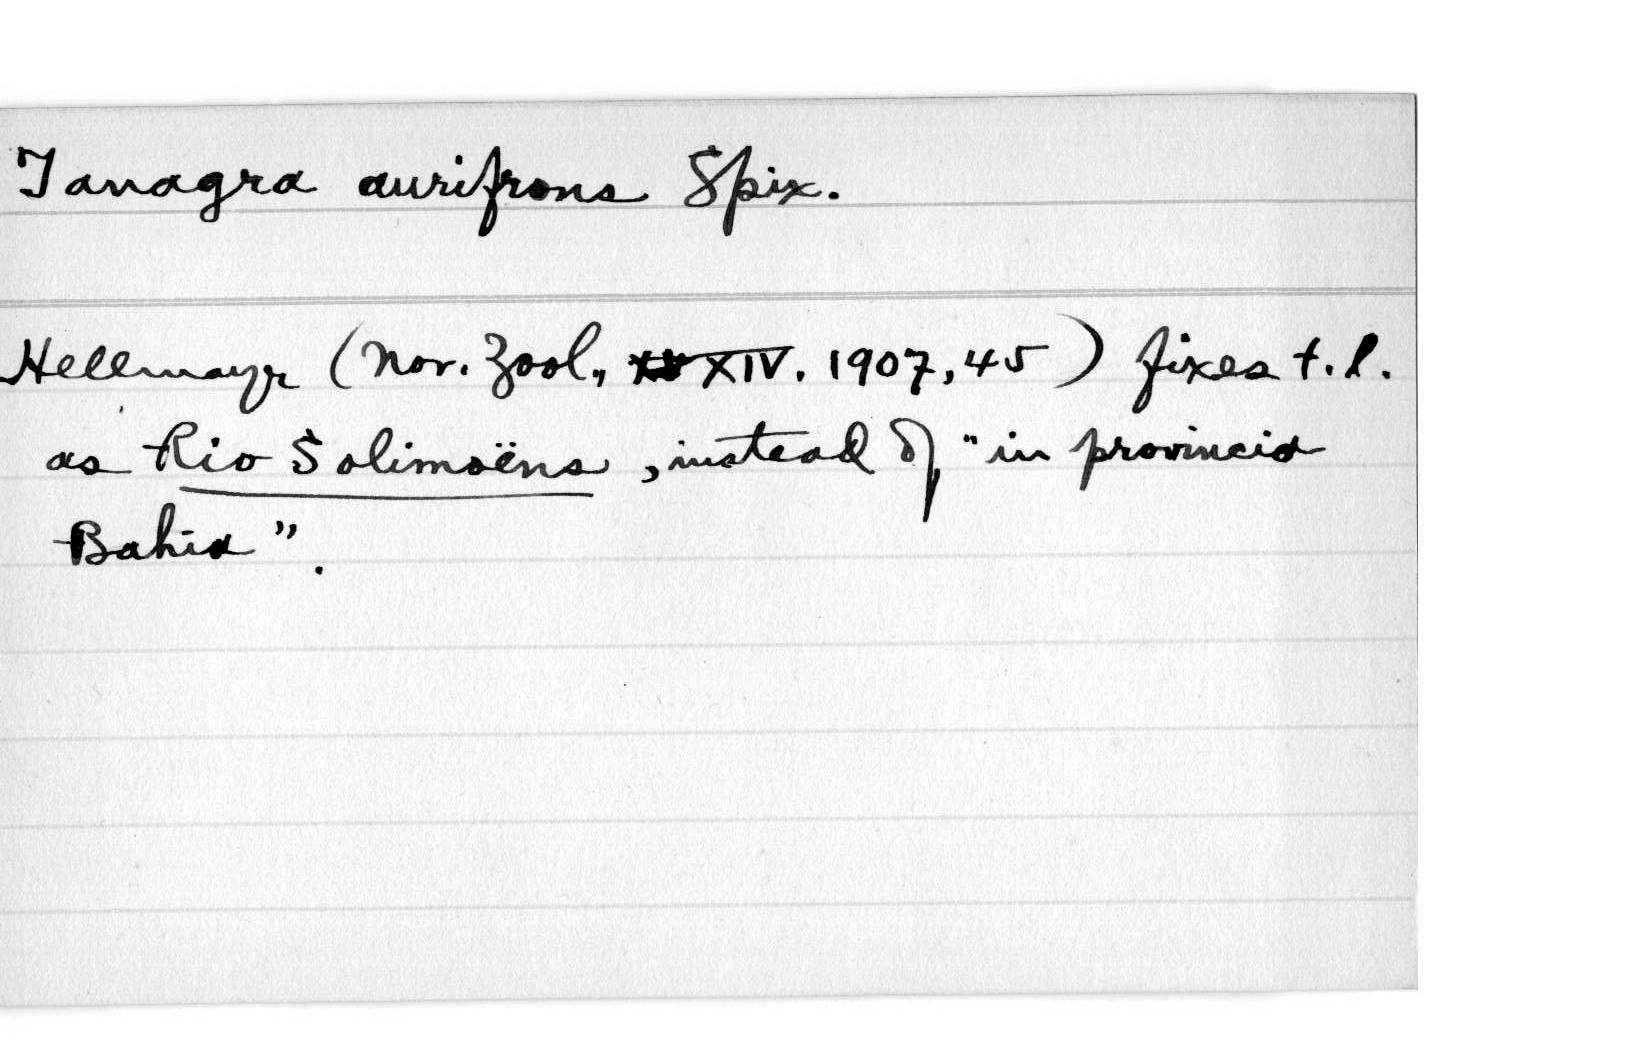 Tanagra aurifrons Spix.
Hellmayr (Nov. Zool., XIV. 1907, 45) fixes t.l.
as Rio Solimoëns, instead of "in provincia
Bahia".